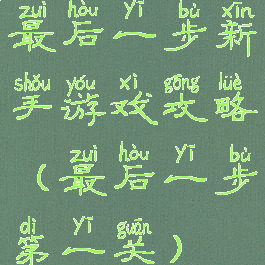 zuì hòu yī bù xīn
最后一步新
shǒu yóu xì gōng lüè
手游戏攻略
zuì hòu yī bù
（最后一步
dì yī guān
第一关）